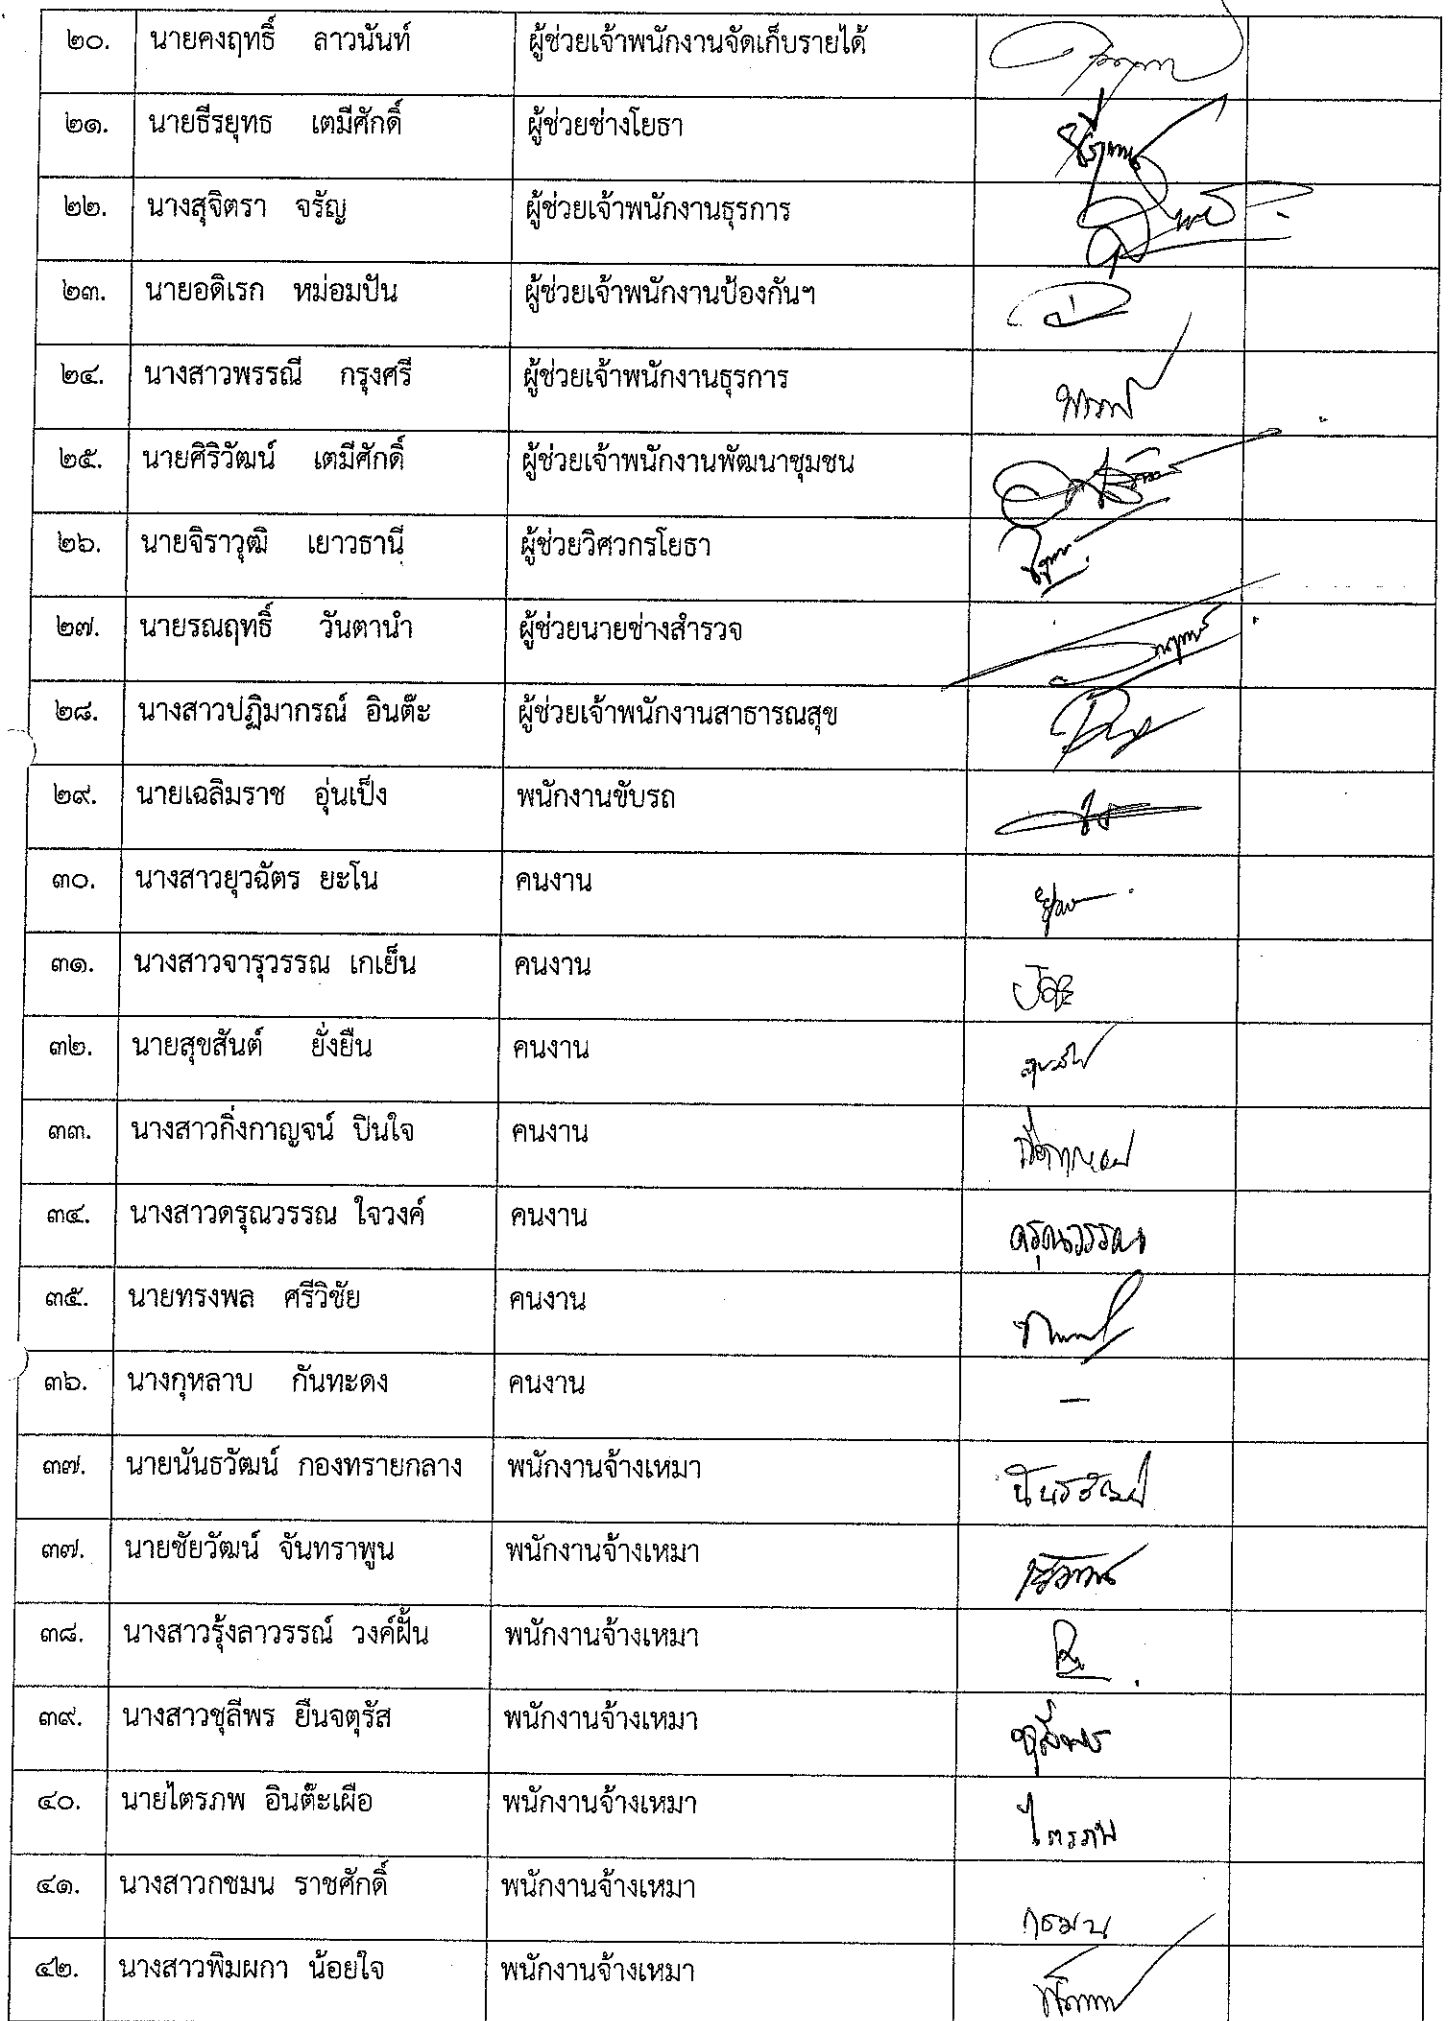 ๒๐. นายคงฤทธิ์ ลาวนันท์ ผู้ช่วยเจ้าพนักงานจัดเก็บรายได้
๒๑. นายธีรยุทธ เตมีศักดิ์ ผู้ช่วยช่างโยธา
๒๒. นางสุจิตรา จรัญ ผู้ช่วยเจ้าพนักงานธุรการ
๒๓. นายอดิเรก หม่อมปัน ผู้ช่วยเจ้าพนักงานป้องกันฯ
๒๔. นางสาวพรรณี กรุงศรี ผู้ช่วยเจ้าพนักงานธุรการ
๒๕. นายศิริวัฒน์ เตมีศักดิ์ ผู้ช่วยเจ้าพนักงานพัฒนาชุมชน
๒๖. นายจิราวุฒิ เยาวธานี ผู้ช่วยวิศวกรโยธา
๒๗. นายรณฤทธิ์ วันตานำ ผู้ช่วยนายช่างสำรวจ
๒๘. นางสาวปฏิมากรณ์ อินต๊ะ ผู้ช่วยเจ้าพนักงานสาธารณสุข
๒๙. นายเฉลิมราช อุ่นเป็ง พนักงานขับรถ
๓๐. นางสาวยุวฉัตร ยะโน คนงาน
๓๑. นางสาวจารุวรรณ เกเย็น คนงาน
๓๒. นายสุขสันต์ ยั่งยืน คนงาน
๓๓. นางสาวกิ่งกาญจน์ ปินใจ คนงาน
๓๔. นางสาวดรุณวรรณ ใจวงค์ คนงาน ดรุณวรรณ
๓๕. นายทรงพล ศรีวิชัย คนงาน
๓๖. นางกุหลาบ กันทะดง คนงาน –
๓๗. นายนันธวัฒน์ กองทรายกลาง พนักงานจ้างเหมา นันธวัฒน์
๓๗. นายชัยวัฒน์ จันทราพูน พนักงานจ้างเหมา
๓๘. นางสาวรุ้งลาวรรณ์ วงค์ฝั้น พนักงานจ้างเหมา
๓๙. นางสาวชุลีพร ยืนจตุรัส พนักงานจ้างเหมา ชุลีพร
๔๐. นายไตรภพ อินต๊ะเผือ พนักงานจ้างเหมา ไตรภพ
๔๑. นางสาวกชมน ราชศักดิ์ พนักงานจ้างเหมา กชมน
๔๒. นางสาวพิมผกา น้อยใจ พนักงานจ้างเหมา